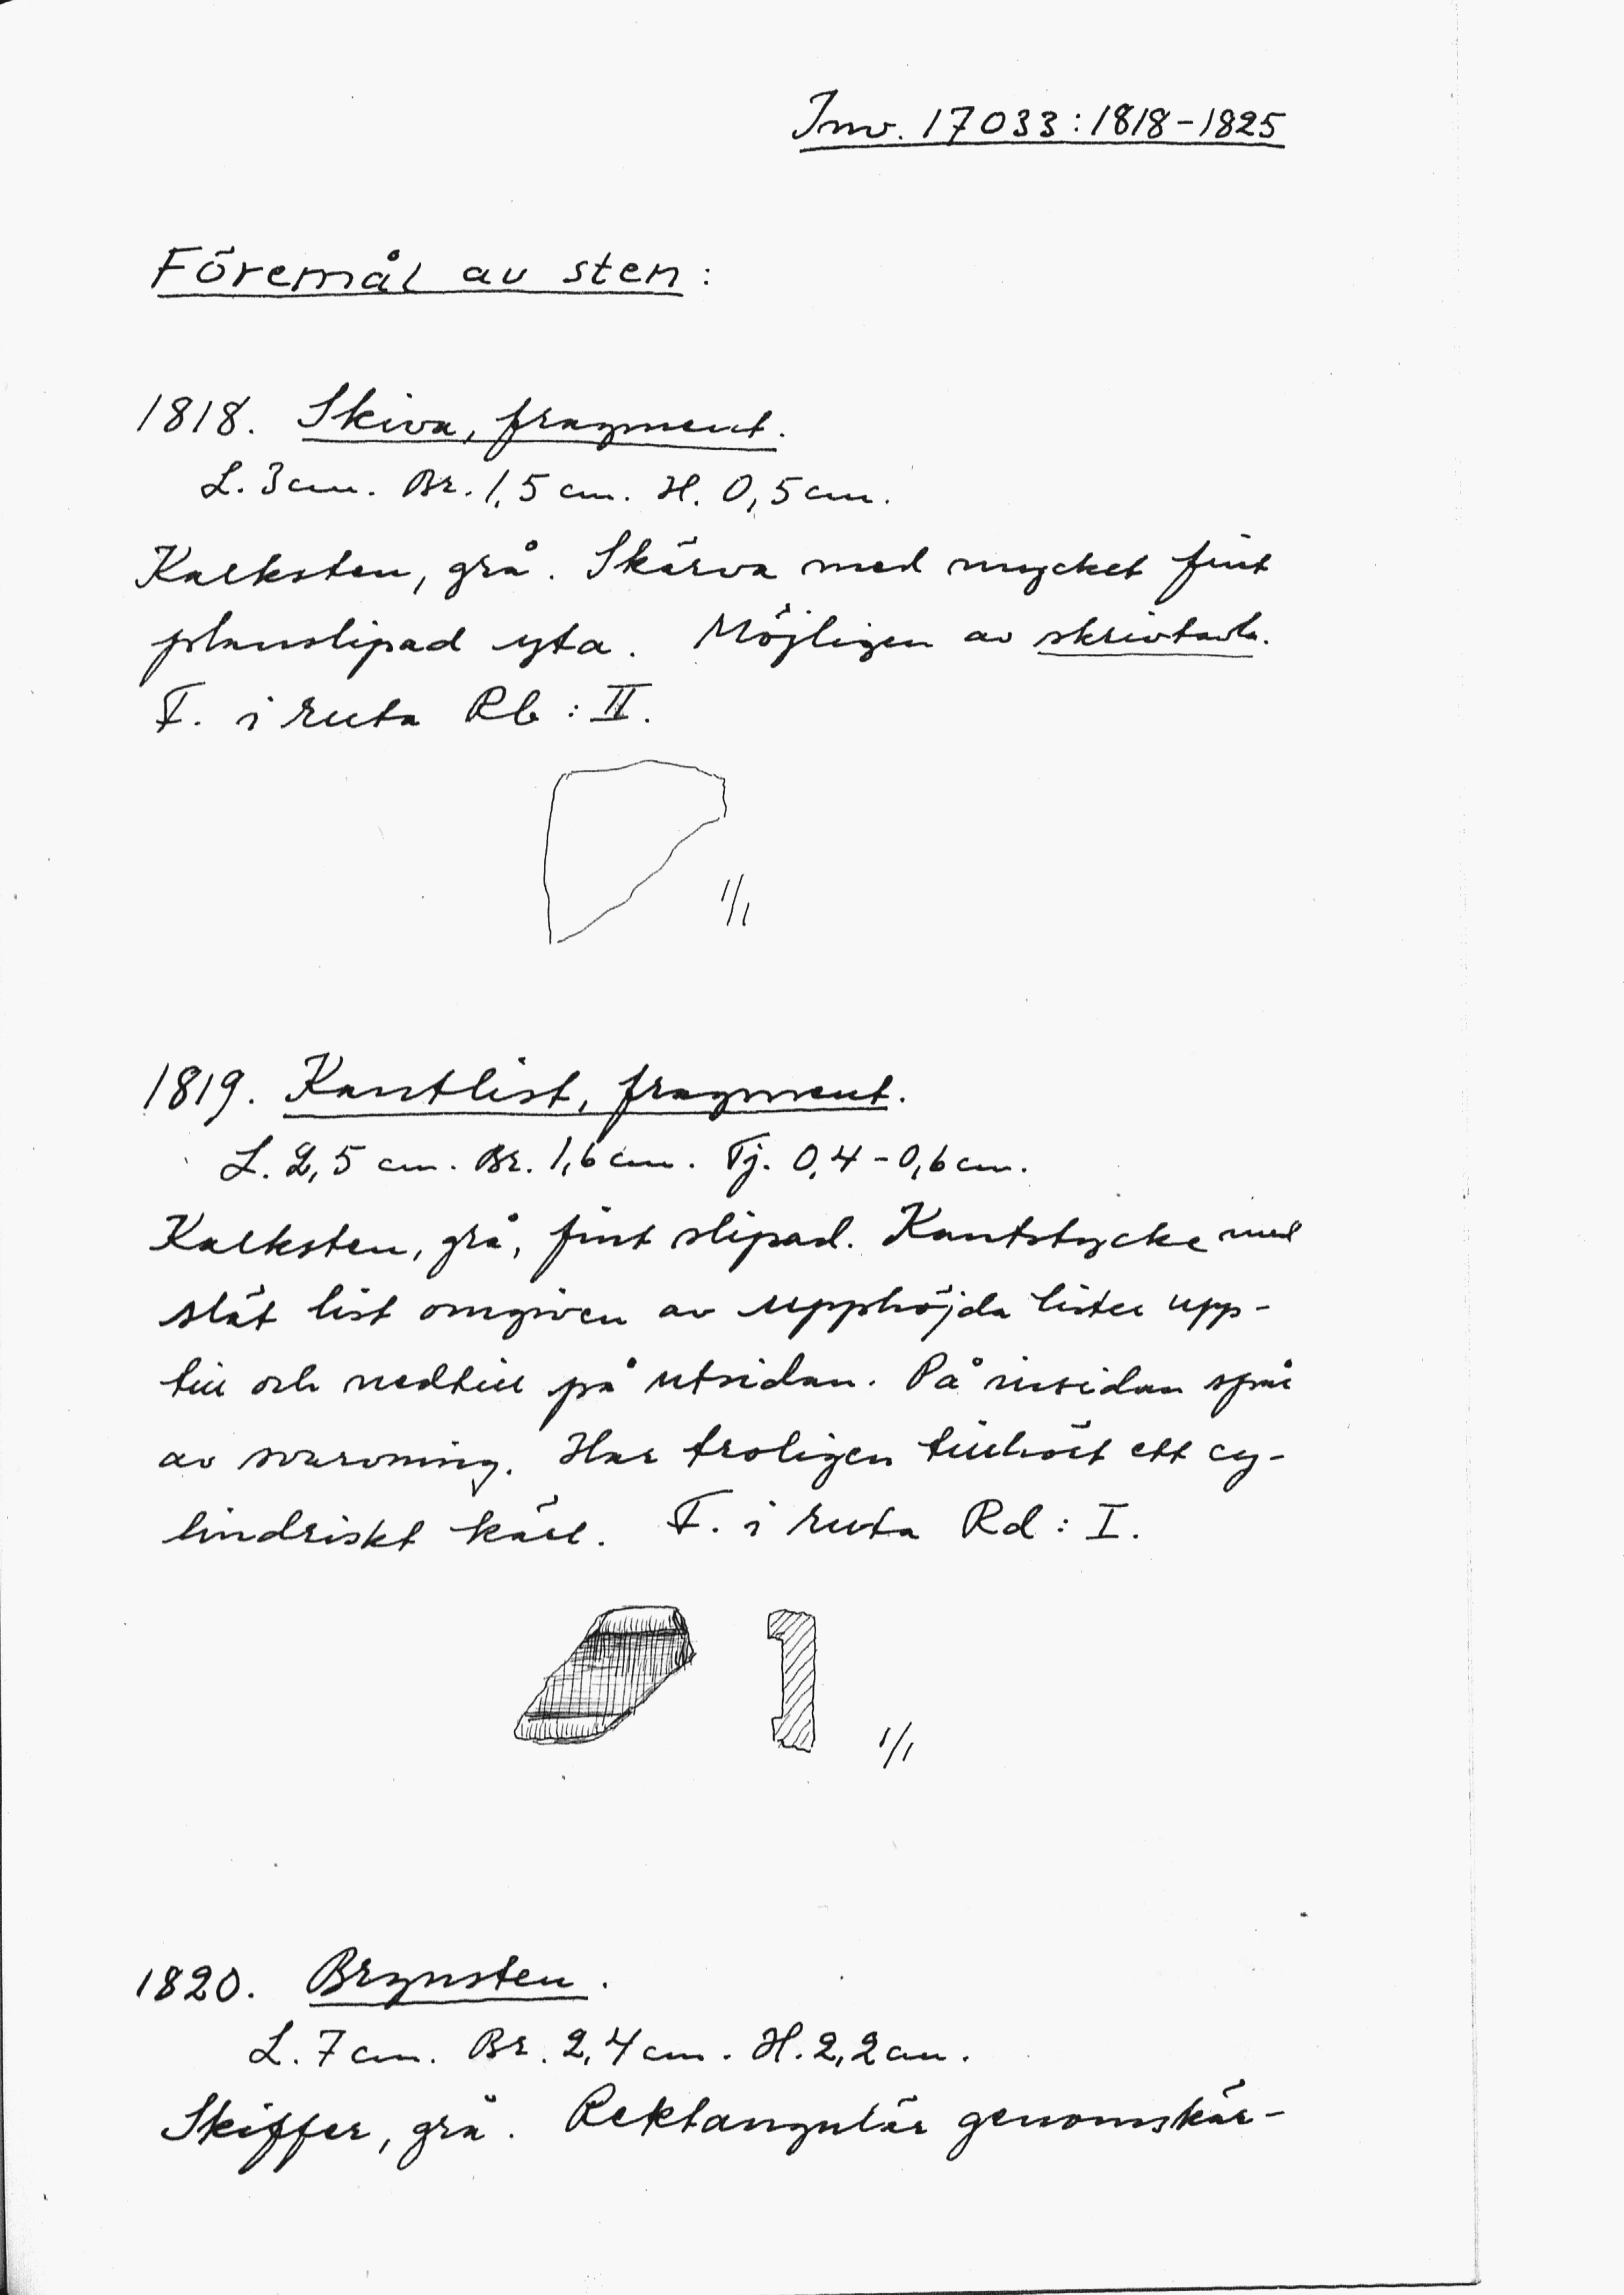 Inv. 17033:1818-1825
Föremål av sten:
1818. Skiva, fragment.
L. 3cm. Br. 1,5 cm. H. 0,5cm.
Kalksten, grå. Skärva med mycket fint
planslipad yta. Möjligen av skrivtavla.
F. i ruta Rb : II.
1/1
1819. Kantlist, fragment.
L. 2,5 cm. Br. 1,6cm. Tj. 0,4-0,6cm.
Kalksten, grå, fint slipad. Kantstycke med
slät list omgiven av upphöjda lister upp-
till och nedtill på utsidan. På insidan spår
av svarvning. Har troligen tillhört ett cy-
lindriskt kärl. F. i ruta Rd : I.
1/1
1820. Brynsten.
L. 7cm. Br. 2,4cm. H. 2,2cm.
Skiffer, grå. Rektangulär genomskär-